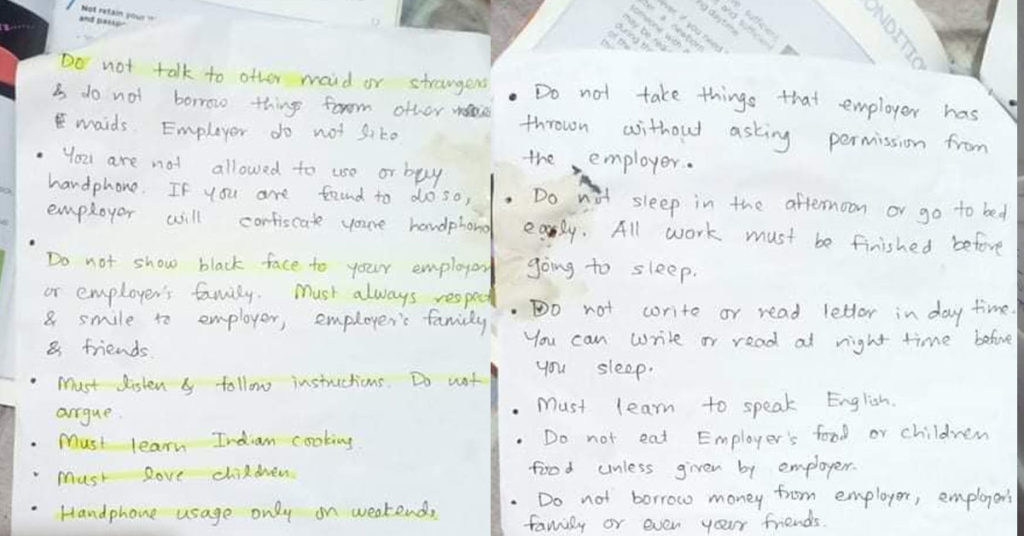 Not retain your
and
Do not talk to other maid or strangers
& do not borrow things from other
maids. Employer do not like
• You are not allowed to use or buy
handphone. If you are found to do so,
employer will confiscate your handphone
•
Do not show black face to your employer
or employer's family. Must always respect
& smile to employer, employer's family
& friends.
• Must listen & follow instructions. Do not
argue.
• Must learn Indian cooking.
• Must love children.
• Handphone usage only on weekends
sufficient
ONDITIO
• Do not take things that employer has
thrown without asking permission from
the employer.
• Do not sleep in the afternoon or go to bed
early. All work must be finished before
going to sleep.
• Do not write or read letter in day time.
You can write or read at night time before
you sleep.
• Must learn to speak English.
• Do not eat Employer's food or children
food unless given by employer.
• Do not borrow money from employer, employer's
family or even your friends.